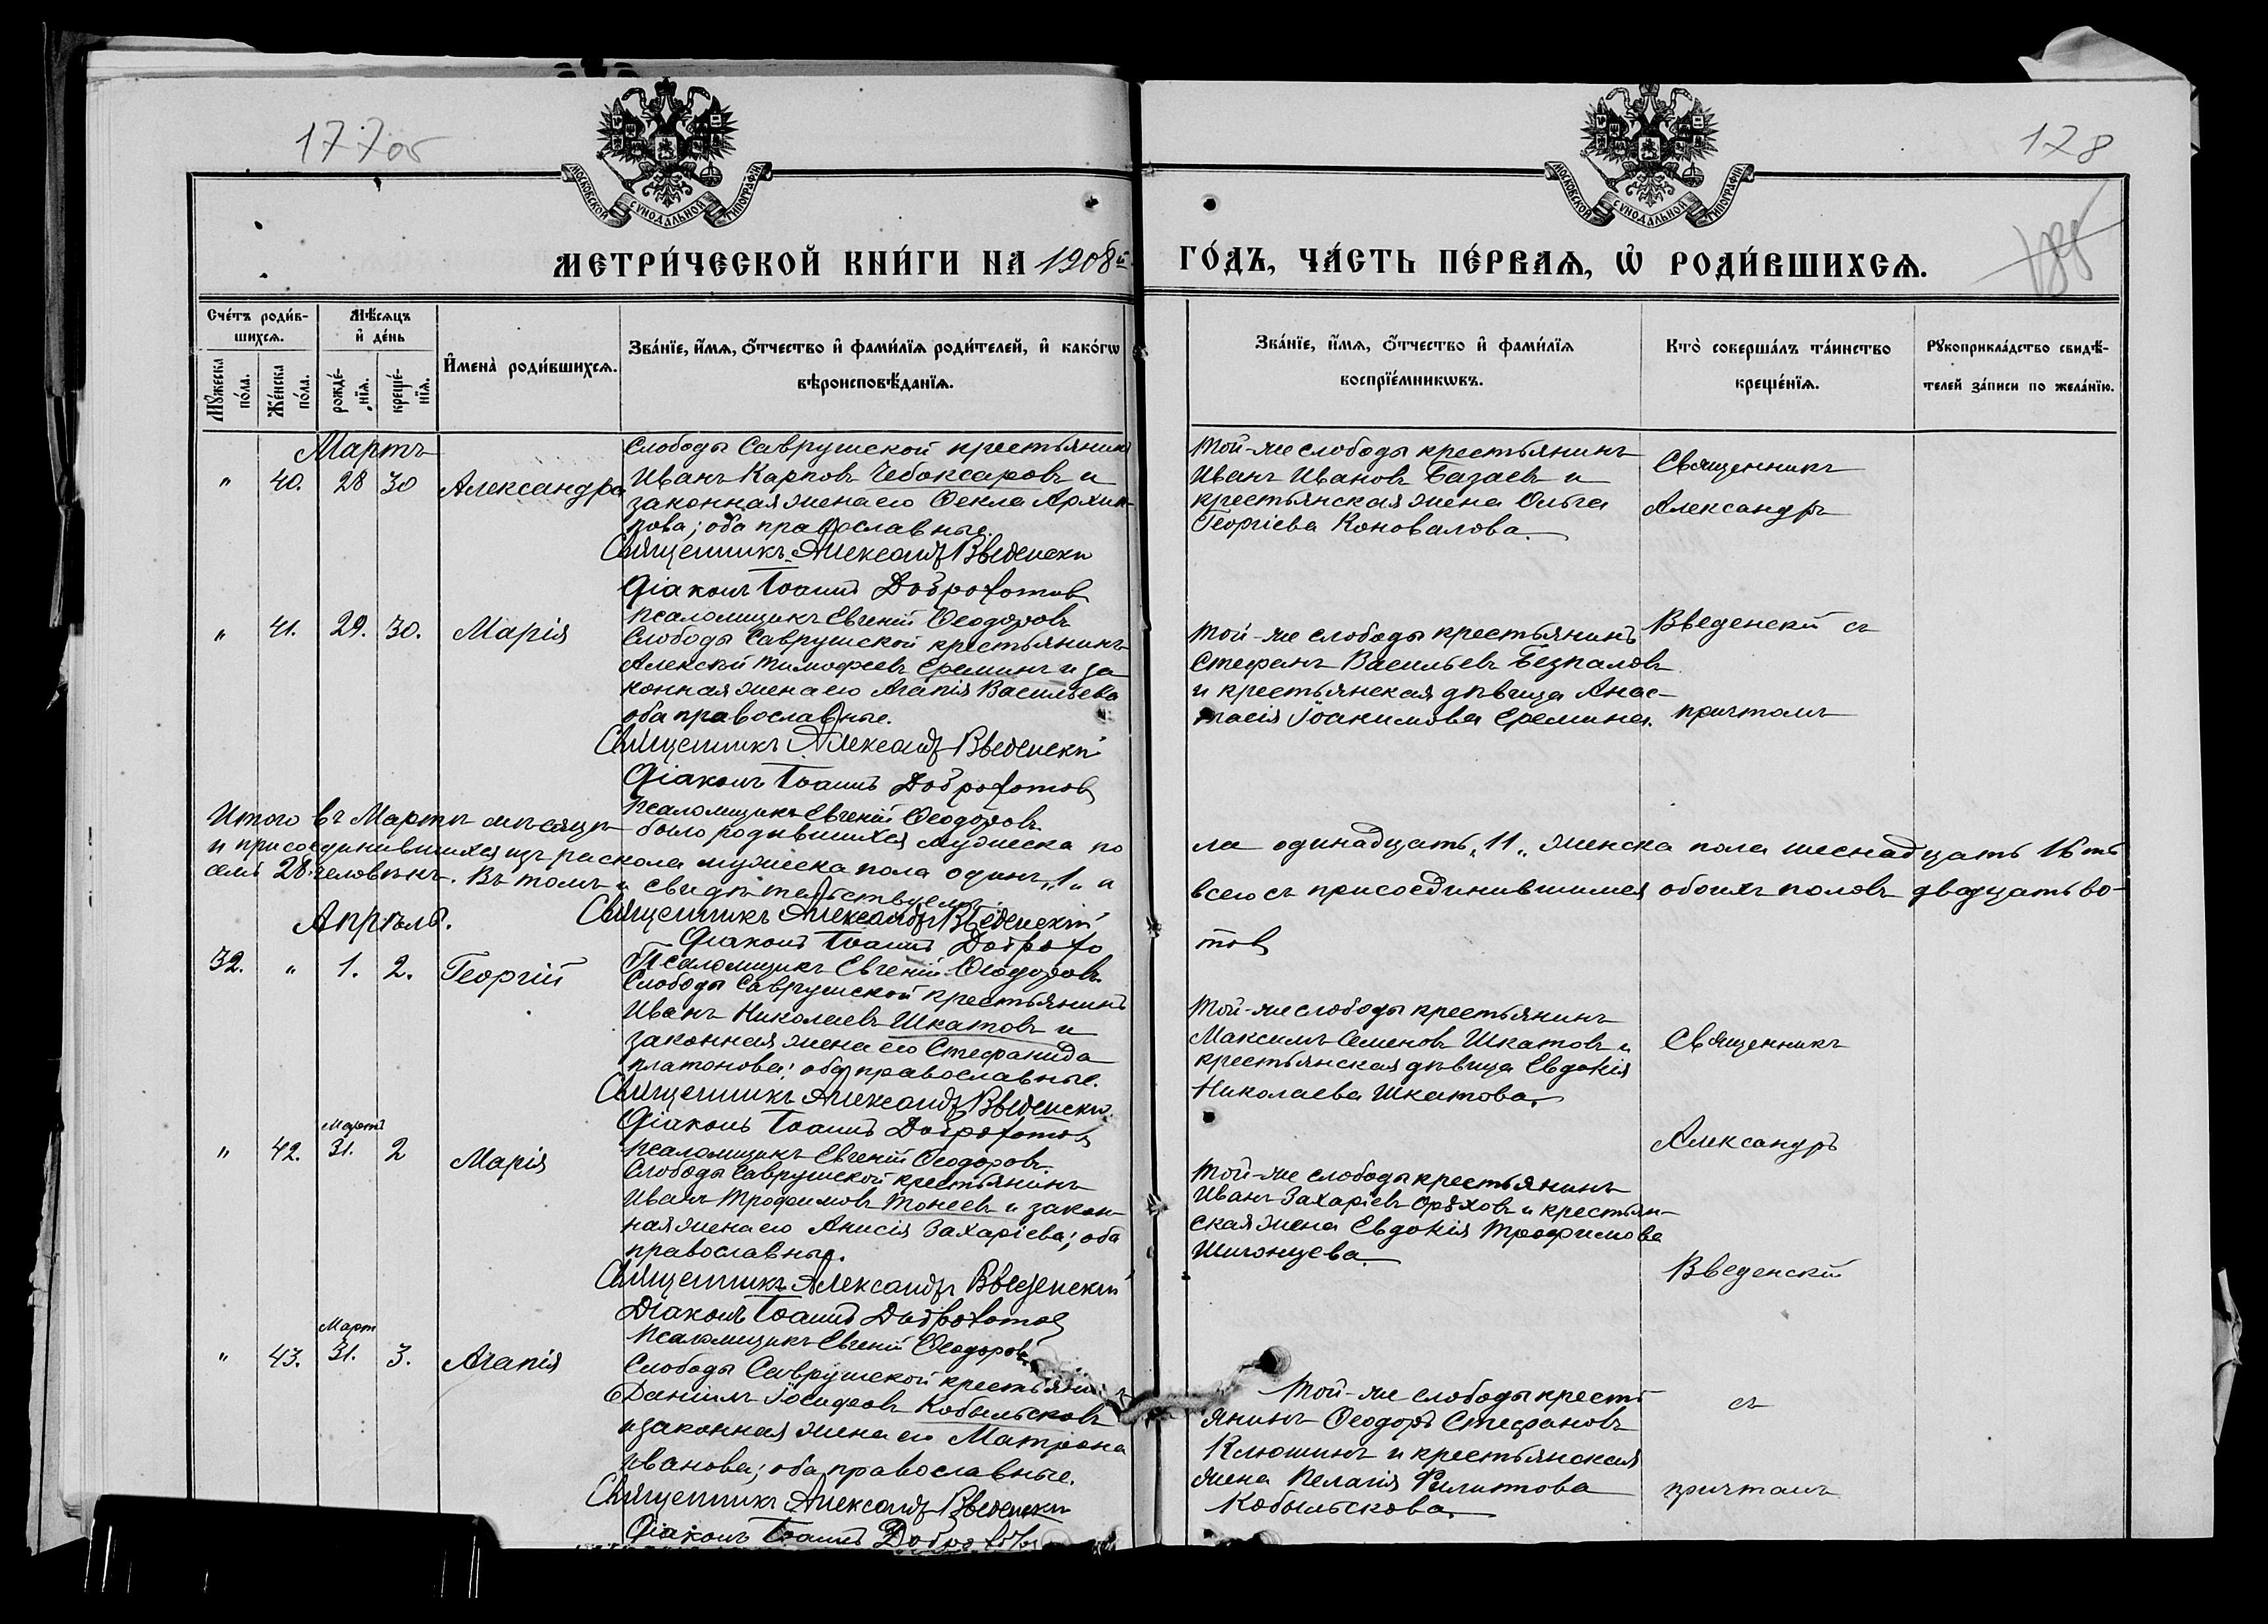 177об
178
МОСКОВСКОЙ СУНОДАЛЬНОЙ ТИПОГРАФІИ
МОСКОВСКОЙ СУНОДАЛЬНОЙ ТИПОГРАФІИ
МЕТРИ́ЧЕСКОЙ КНИ́ГИ НА 1908й
ГО́ДЪ, ЧА́СТЬ ПЕ́РВАѦ, Ѡ РОДИ́ВШИХСѦ.
Сче́тъ роди́в-
шихсѧ.
Мѣ́сѧцъ
и҆ де́нь
Мꙋ́жеска
по́ла.
Же́нска
по́ла.
рожде́-
нїѧ.
креще́-
нїѧ.
И҆мена̀ роди́вшихсѧ.
Зва́нїе, и҆́мѧ, ѻ҆́тчество и҆ фами́лїѧ роди́телей, и҆ како́гѡ
вѣроисповѣ́данїѧ.
Зва́нїе, и҆́мѧ, ѻ҆́тчество и҆ фами́лїѧ
воспрїе́мникѡвъ.
Кто̀ соверша́лъ та́инство
креще́нїѧ.
Рꙋкоприкла́дство свидѣ́-
телей за́писи по жела́нїю.
Мартъ
" 40. 28 30 Александра
Слободы Саврушской крестьянинъ
Иванъ Карповъ Чебоксаровъ и
законная жена его Ѳекла Архип-
пова; оба православные.
Священникъ Александръ Введенскій
Діаконъ Іоаннъ Доброхотовъ
Псаломщикъ Евгеній Ѳеодоровъ
Той-же слободы крестьянинъ
Иванъ Ивановъ Базаевъ и
крестьянская жена Ольга
Георгіева Коновалова.
Священникъ
Александръ
" 41. 29. 30. Марія
Слободы Саврушской крестьянинъ
Алексѣй Тимофеевъ Ереминъ и за
конная жена его Агапія Васильева
оба православные.
Священникъ Александръ Введенскій
Діаконъ Іоаннъ Доброхотовъ
Псаломщикъ Евгеній Ѳеодоровъ
Той-же слободы крестьянинъ
Стефанъ Васильевъ Безпаловъ
и крестьянская дѣвица Анас-
тасія Іоакимова Еремина.
Введенскій съ
причтомъ
Итого въ Мартѣ мѣсяцѣ было родившихся мужеска по
ла одинадцать "11" женска пола шеснадцать 16ть
и присоединившихся изъ раскола мужеска пола одинъ "1" а
всего съ присоединившимся обоихъ половъ двадцать во-
семь 28 человѣкъ. Въ томъ и свидѣтельствуемъ:
Священникъ Александръ Введенскій
Діаконъ Іоаннъ Доброхо
товъ
Псаломщикъ Евгеній Ѳеодоровъ
Апрѣль.
32. " 1. 2. Георгій
Слободы Саврушской крестьянинъ
Иванъ Николаевъ Шкатовъ и
законная жена его Стефанида
Платонова; оба православные.
Священникъ Александръ Введенскій
Діаконъ Іоаннъ Доброхотовъ
Псаломщикъ Евгеній Ѳеодоровъ
Той-же слободы крестьянинъ
Максимъ Семеновъ Шкатовъ и
крестьянская дѣвица Евдокія
Николаева Шкатова.
Священникъ
Александръ
" 42. Мартъ 31. 2 Марія
Слободы Саврушской крестьянинъ
Иванъ Трофимовъ Тонеевъ и закон-
ная жена его Анисія Захаріева; оба
православные.
Священникъ Александръ Введенскій
Діаконъ Іоаннъ Доброхотовъ
Псаломщикъ Евгеній Ѳеодоровъ
Той-же слободы крестьянинъ
Иванъ Захаріевъ Орѣховъ и крестьян-
ская жена Евдокія Трофимова
Шигонцева.
Введенскій
" 43. Март 31. 3. Агапія
Слободы Саврушской крестьянинъ
Даніилъ Іосифовъ Кобыльсковъ
и законная жена его Матрона
Иванова; оба православные.
Священникъ Александръ Введенскій
Діаконъ Іоаннъ Доброхотовъ
Той-же слободы кресть
янинъ Ѳеодоръ Стефановъ
Клюшинъ и крестьянская
жена Пелагія Филиппова
Кобыльскова.
съ
причтомъ